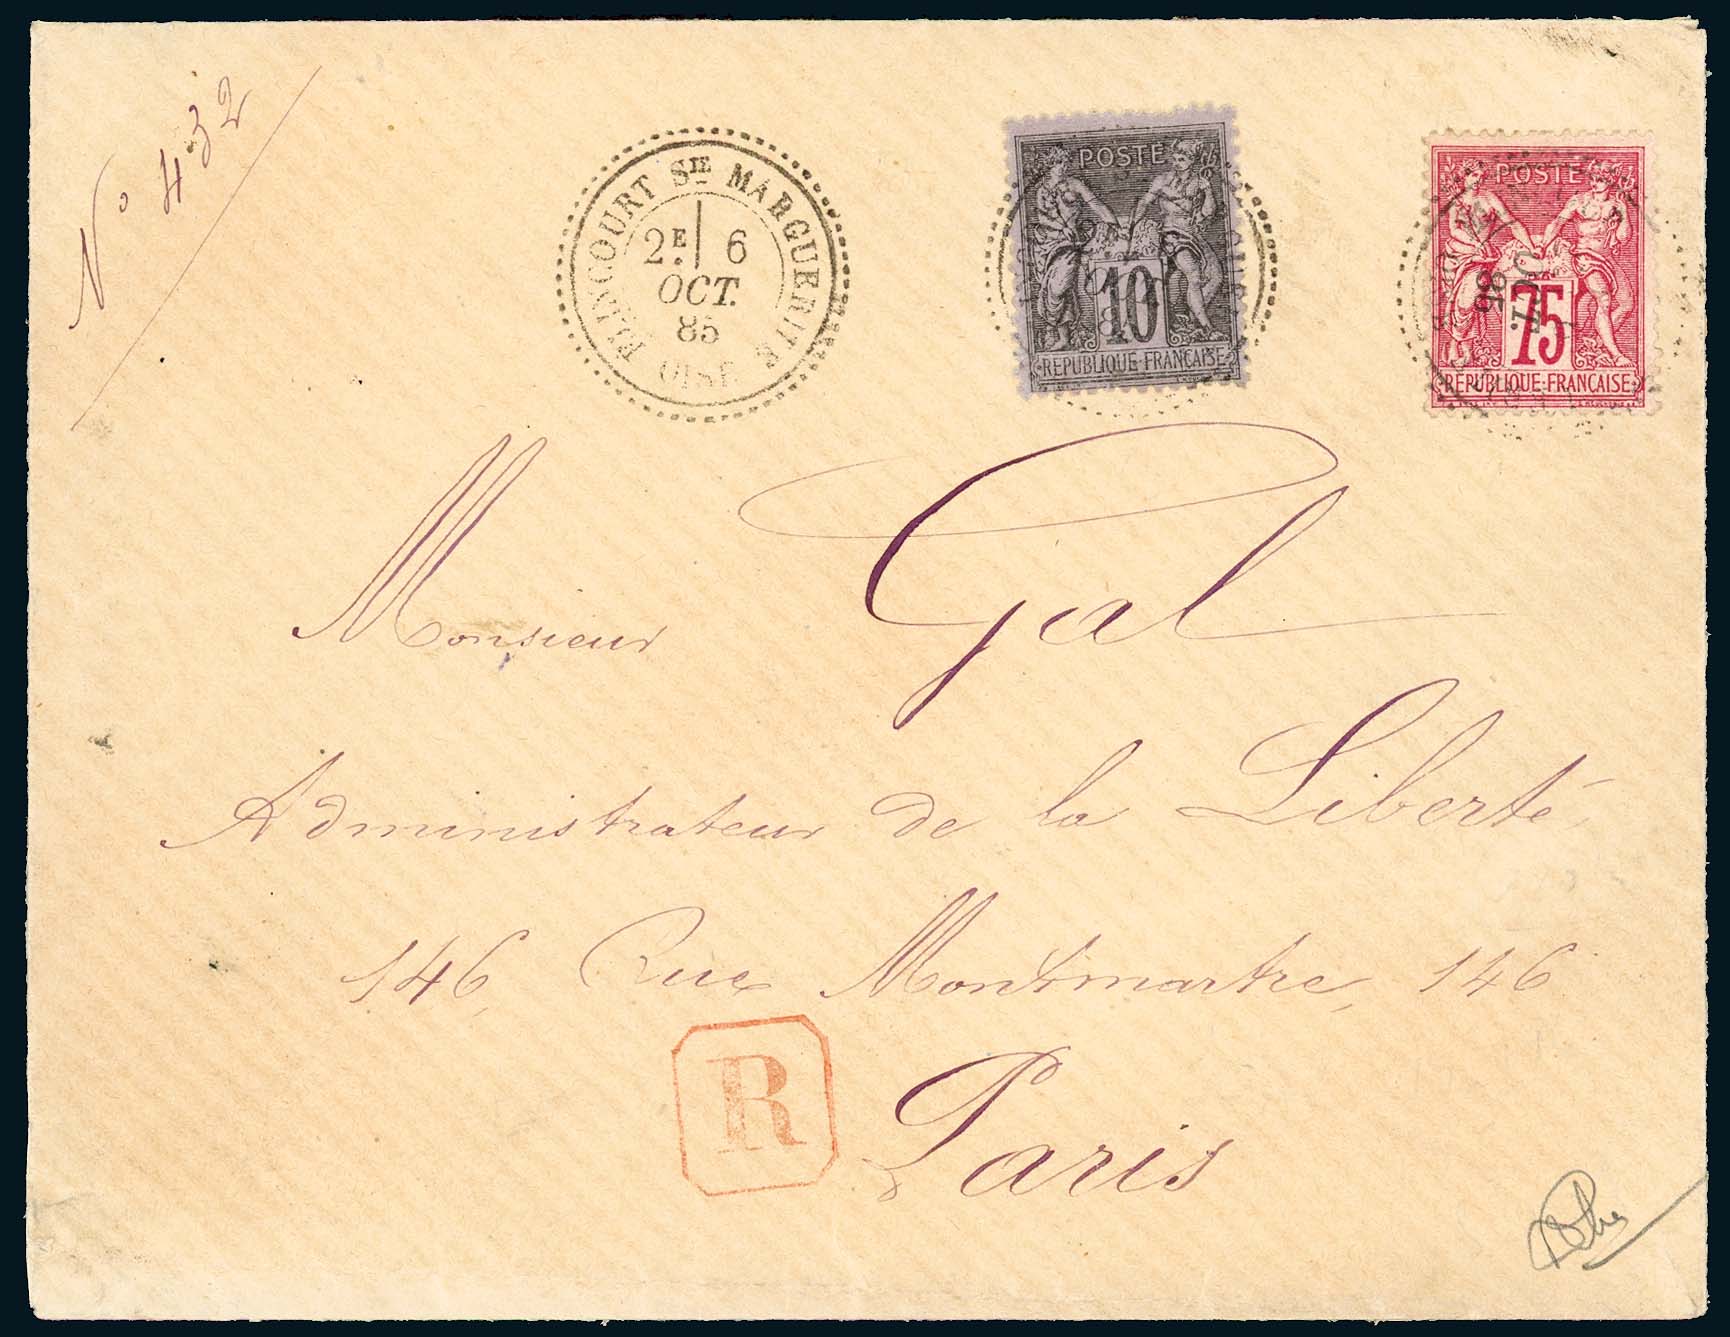 N° 432
ELINCOURT STE MARGUERITE
2E 6
OCT.
85
OISE
POSTE
10
REPUBLIQUE FRANCAISE
POSTE
OCT.
85
75
REPUBLIQUE FRANCAISE
Monsieur Gal
Administrateur de la Liberté
146, Rue Montmartre, 146
R
Paris